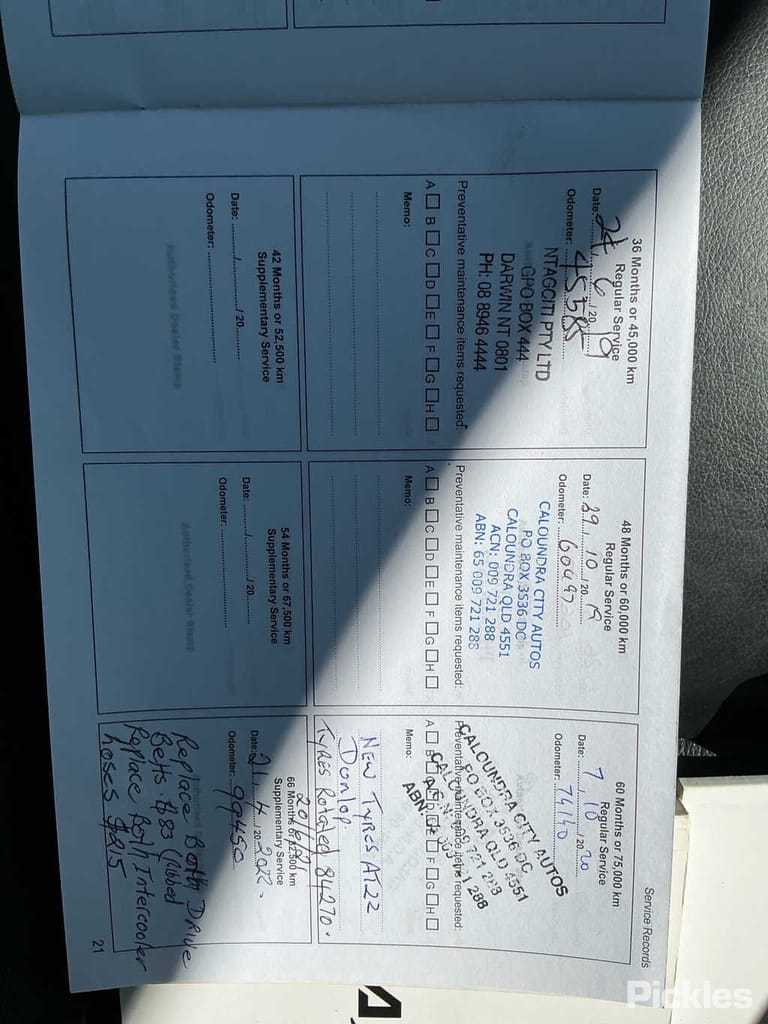 Service Records
36 Months or 45,000 km
Regular Service
Date: 24/6/2019
Odometer: 45585
NTAGCITI PTY LTD
GPO BOX 444
DARWIN NT 0801
PH: 08 8946 4444
Preventative maintenance items requested:
A B C D E F G H
Memo:
48 Months or 60,000 km
Regular Service
Date: 29/10/2019
Odometer: 60497
CALOUNDRA CITY AUTOS
PO BOX 3536 DC
CALOUNDRA QLD 4551
ACN: 009 721 288
ABN: 65 009 721 288
Preventative maintenance items requested:
A B C D E F G H
Memo:
60 Months or 75,000 km
Regular Service
Date: 7/10/2020
Odometer: 74140
CALOUNDRA CITY AUTOS
PO BOX 3536 DC
CALOUNDRA QLD 4551
Preventative maintenance items requested:
Memo:
NEW TYRES AT22
Dunlop.
Tyres Rotated 84270.
42 Months or 52,500 km
Supplementary Service
Date: / /20
Odometer:
Authorised Dealer Stamp
54 Months or 67,500 km
Supplementary Service
Date: / /20
Odometer:
Authorised Dealer Stamp
66 Months or 82,500 km
Supplementary Service
Date: 21/4/2022.
Odometer: 99450
Replace Both Drive
Belts. $83 (Ribbed
Replace Both Intercooler
hoses $215
21
Pickles